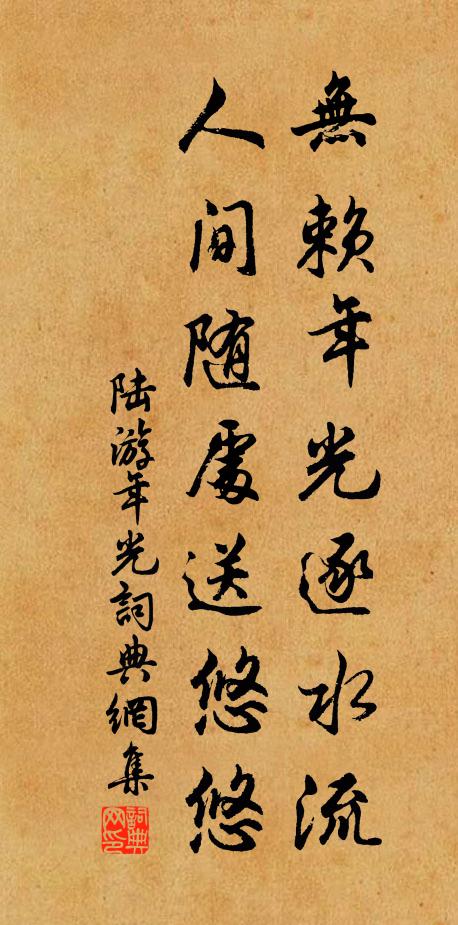 無賴年光逐水流
人间随處送悠悠
陆游年光詞典網集
詞典网印